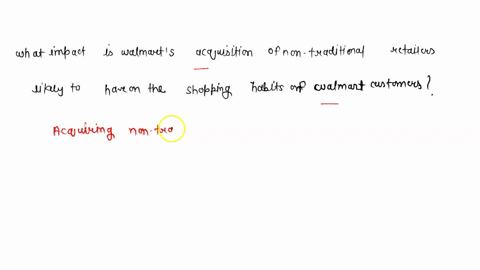 what impact is walmart's acquisition of non-traditional retailers
likely to have on the shopping habits of walmart customers?
Acquiring non-tra